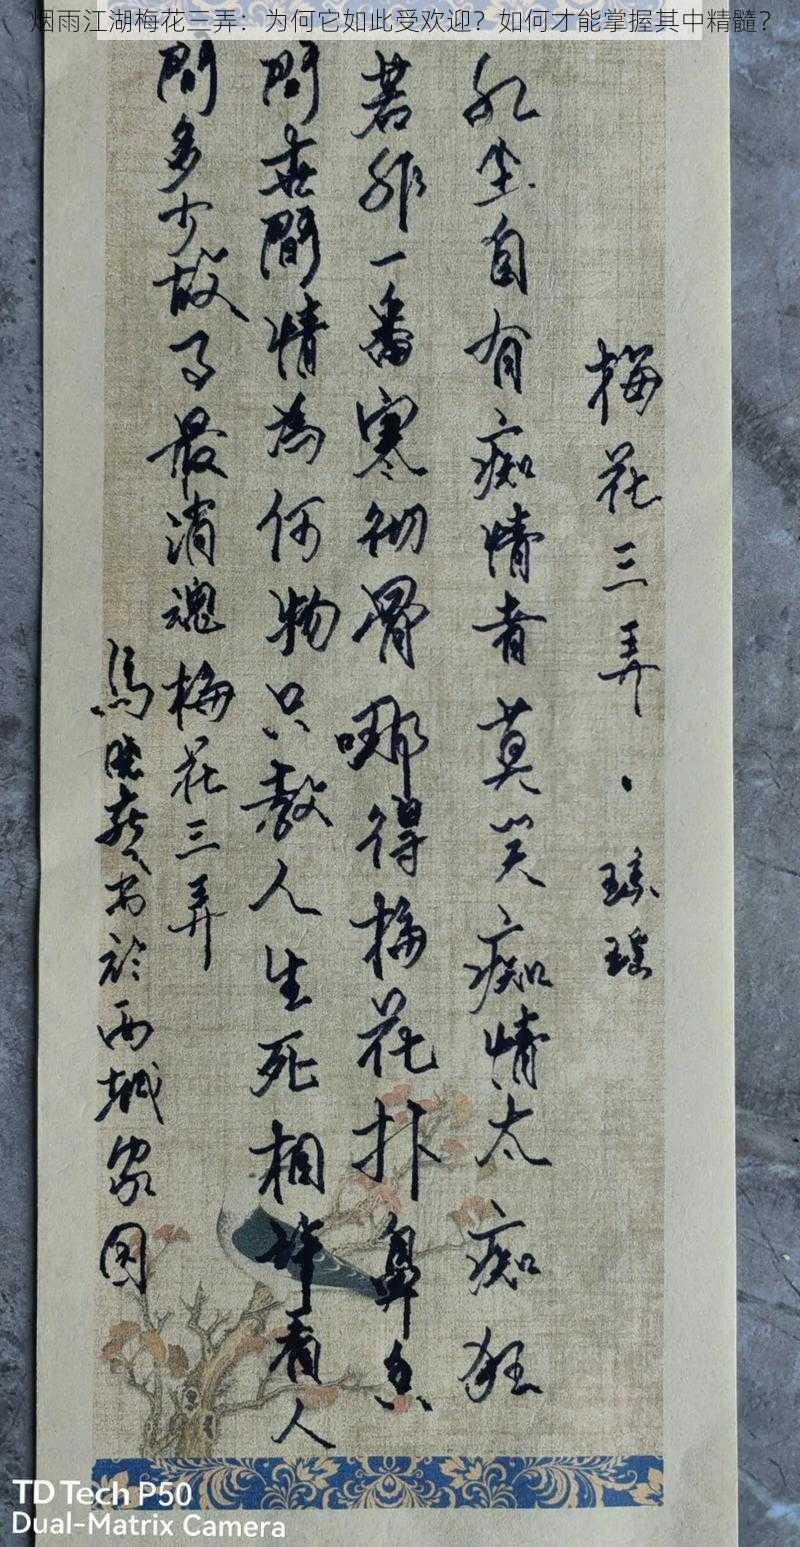 烟雨江湖梅花三弄：为何它如此受欢迎？如何才能掌握其中精髓？
梅花三弄·琼瑶
红尘自有痴情者莫笑痴情太痴狂
若非一番寒彻骨哪得梅花扑鼻香
問世間情為何物只教人生死相许看人
間多少故事最消魂梅花三弄
馬晓 书於西城家园
TD Tech P50
Dual-Matrix Camera